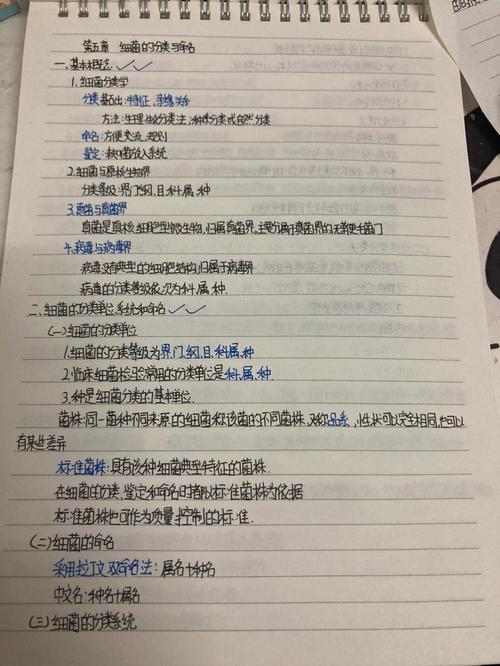 第五章 细菌的分类与命名
一、基本概念
1.细菌分类学
分类基础:特征,亲缘关系
方法:生理学分类法,种系分类或自然分类
命名:方便交流,规则
鉴定:未知菌放入系统
2.细菌与原核生物界
分类等级:界、门、纲、目、科、属、种
3.真菌与真菌界
真菌是真核细胞型微生物,归属真菌界。主要分属于真菌界的
4.病毒与病毒界
病毒没有典型的细胞结构,归属于病毒界
病毒的分类等级依次为科.属.种.
二、细菌的分类单位、系统和命名
(一)细菌的分类单位
1.细菌的分类等级为界、门、纲、目、科、属、种
2.临床细菌检验常用的分类单位是科.属.种.
3.种是细菌分类的基本单位.
菌株:同一菌种不同来源的细菌称该菌的不同菌株.又称品系,性状可以完全相同,也可以
有某些差异
标准菌株:具有该种细菌典型特征的菌株.
在细菌的分类、鉴定和命名时都以标准菌株为依据
标准菌株也可作为质量控制的标准.
(二)细菌的命名
采用拉丁文双命名法:属名+种名
中文名:种名+属名
(三)细菌的分类系统